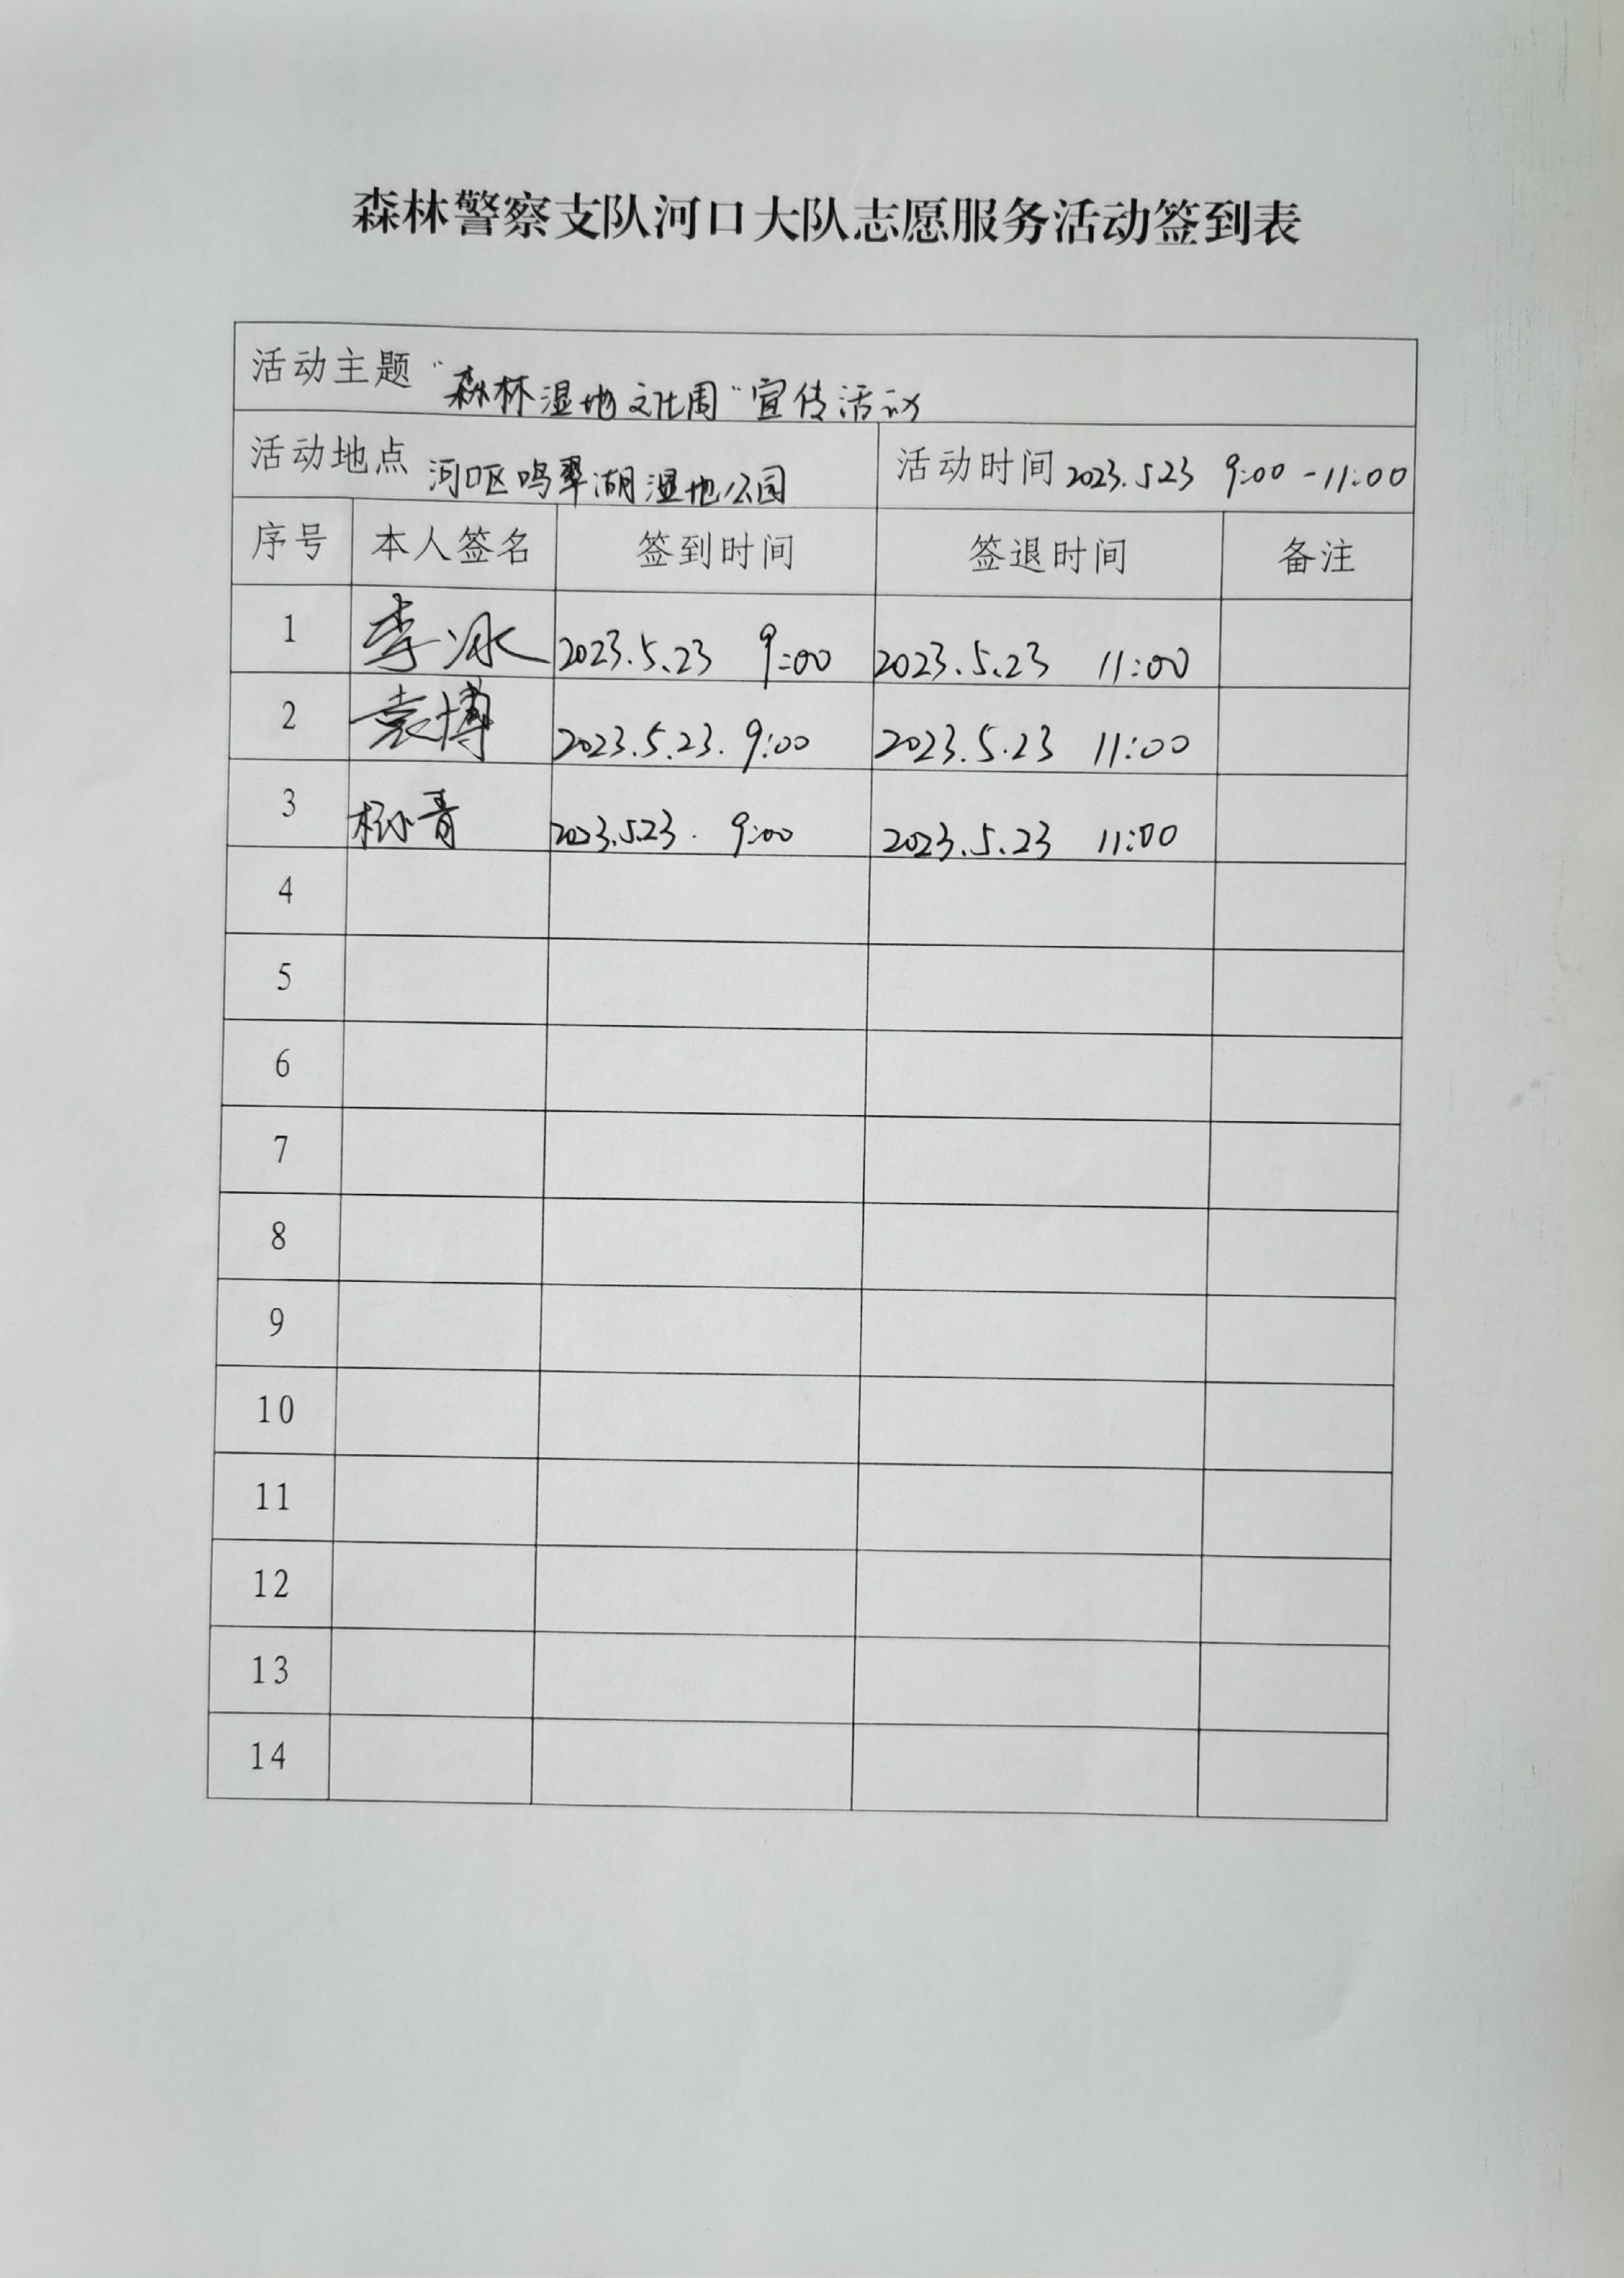 森林警察支队河口大队志愿服务活动签到表
活动主题 “森林湿地文化周”宣传活动
活动地点 河口区鸣翠湖湿地公园 活动时间 2023.5.23 9:00-11:00
序号 本人签名 签到时间 签退时间 备注
1 李冰 2023.5.23 9:00 2023.5.23 11:00
2 袁博 2023.5.23. 9:00 2023.5.23 11:00
3 青 2023.5.23. 9:00 2023.5.23 11:00
4
5
6
7
8
9
10
11
12
13
14